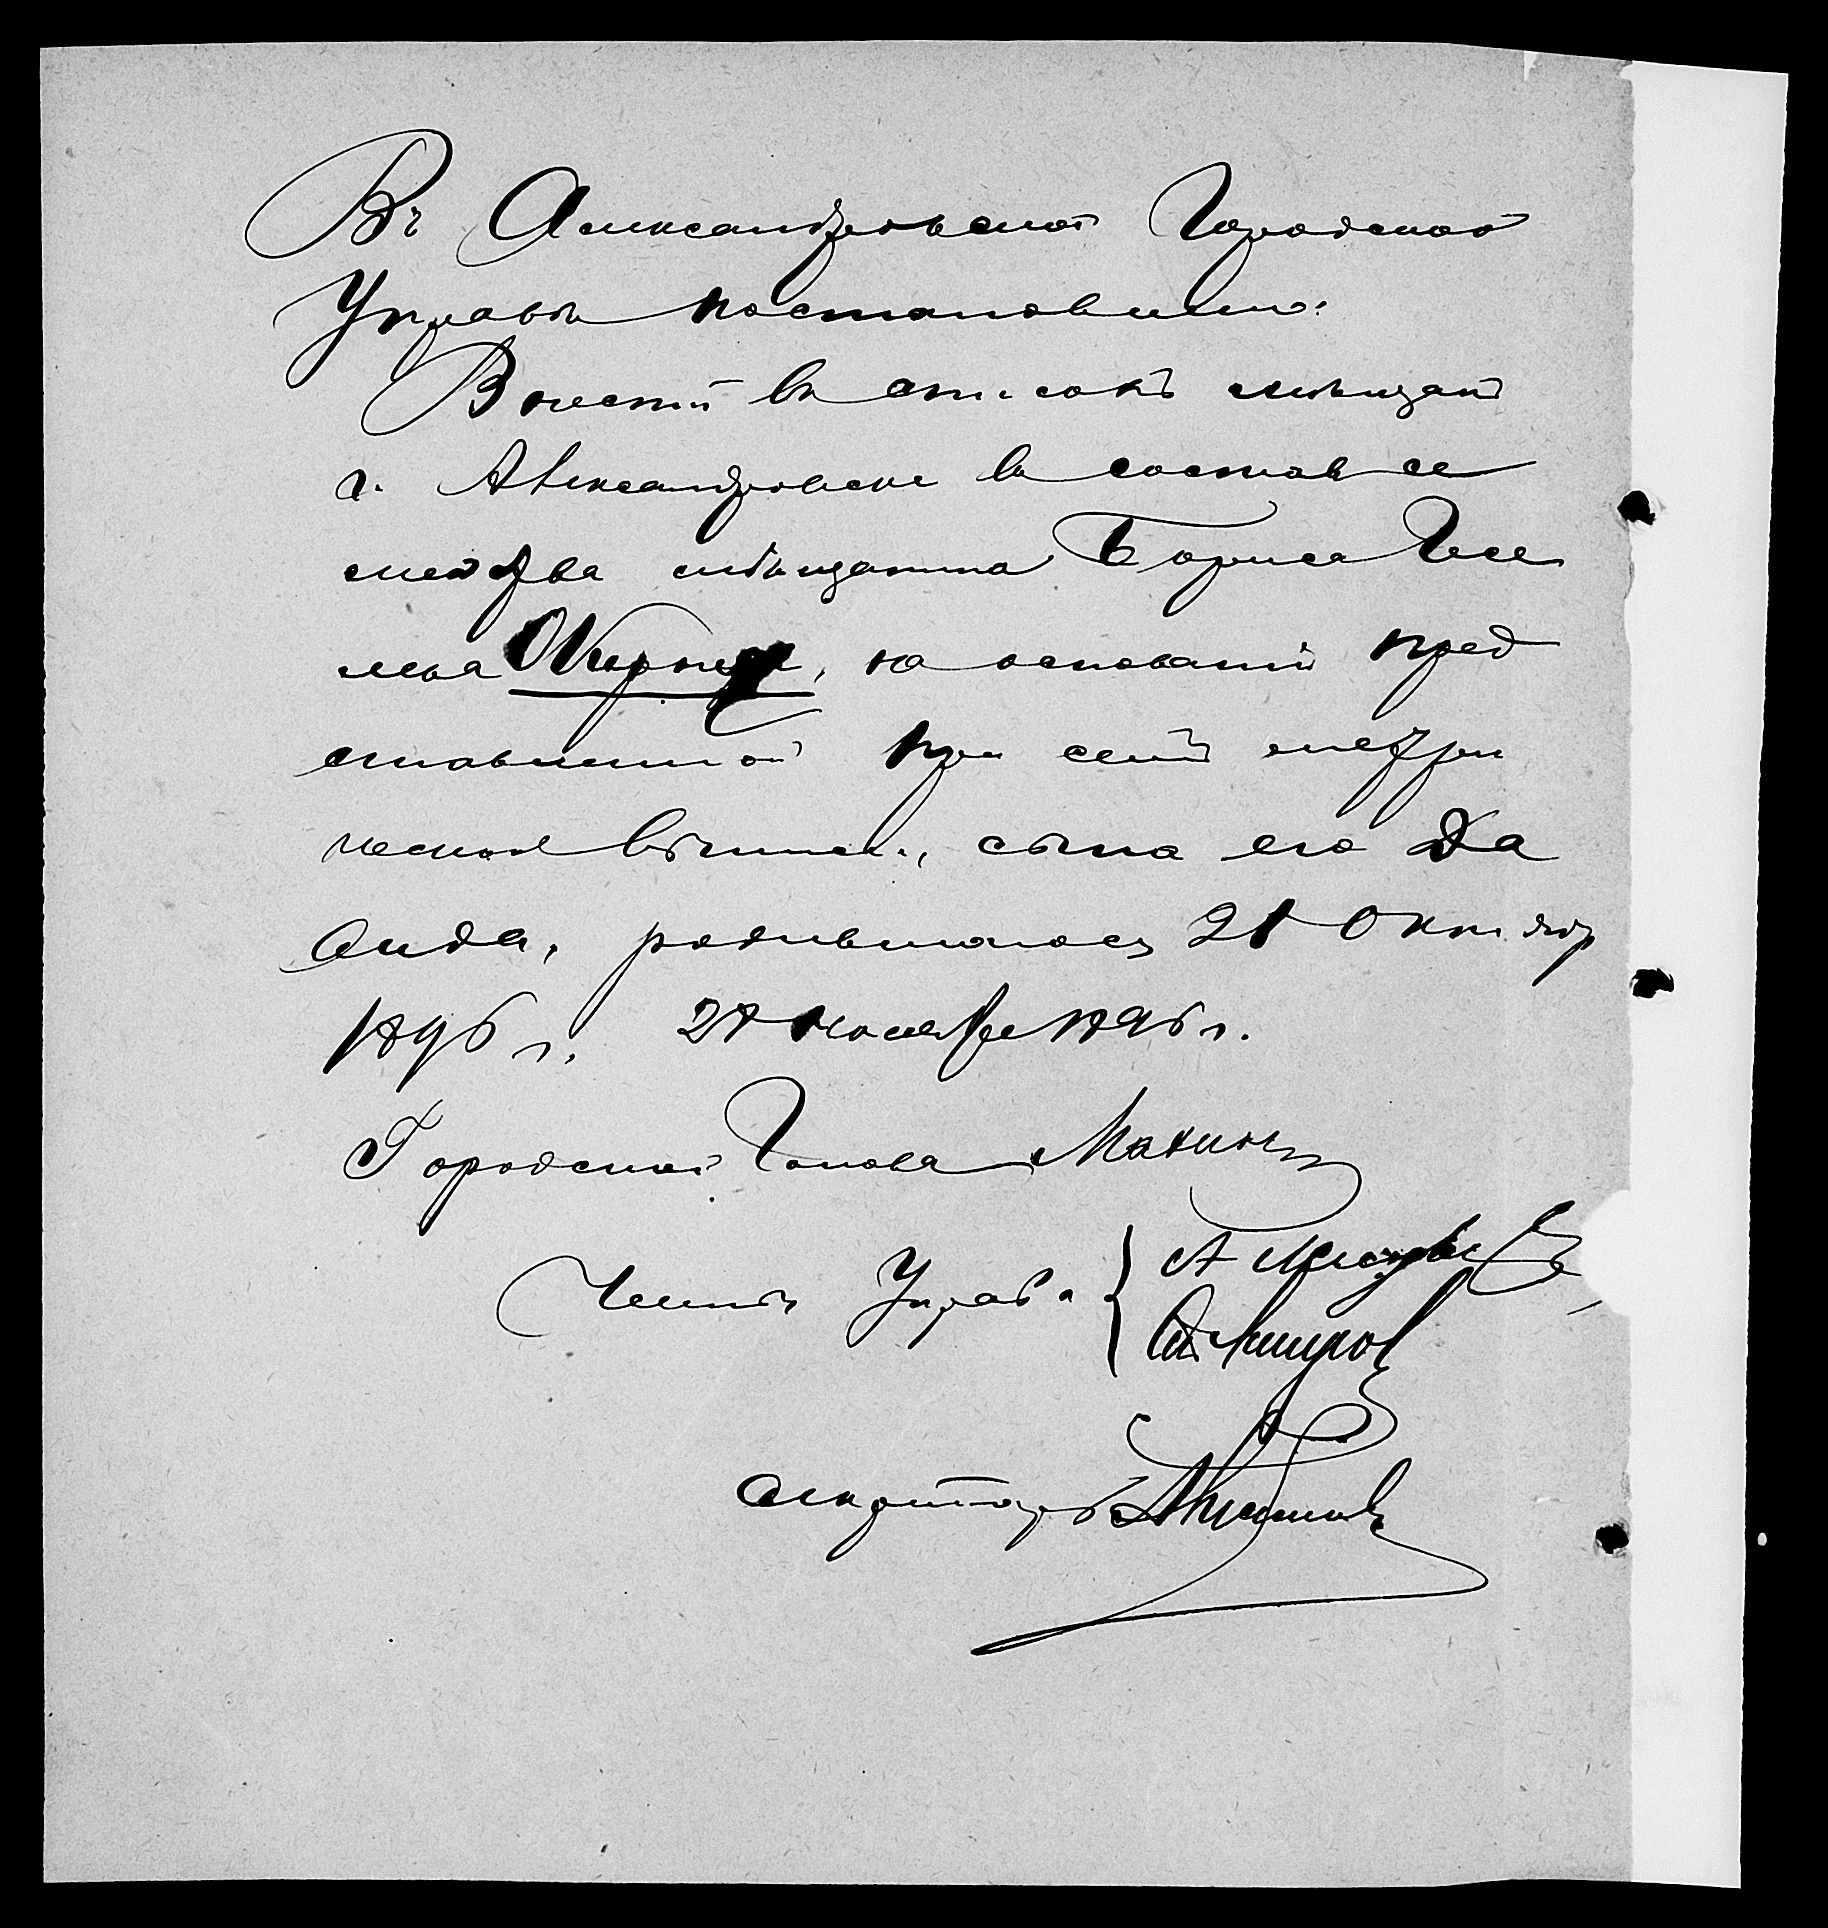 Въ Александровской Городской
Управѣ постановлено:
Внести въ списокъ мѣщанъ
г. Александровска въ состав се
мейства мѣщанина Бориса
на основаніи пред
ставленной при семъ метри
ческой выписи, сына его Да
вида, родившагося 21 Октябр
1896 г. 27 Ноября 1896 г.
Городской Голова Махинъ
Члены Управы { А
Секретарь